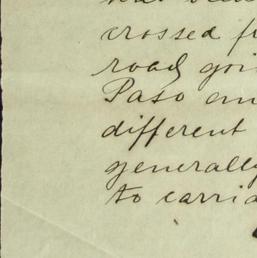 crossed f
road goi
Paso an
different
generally
to carria